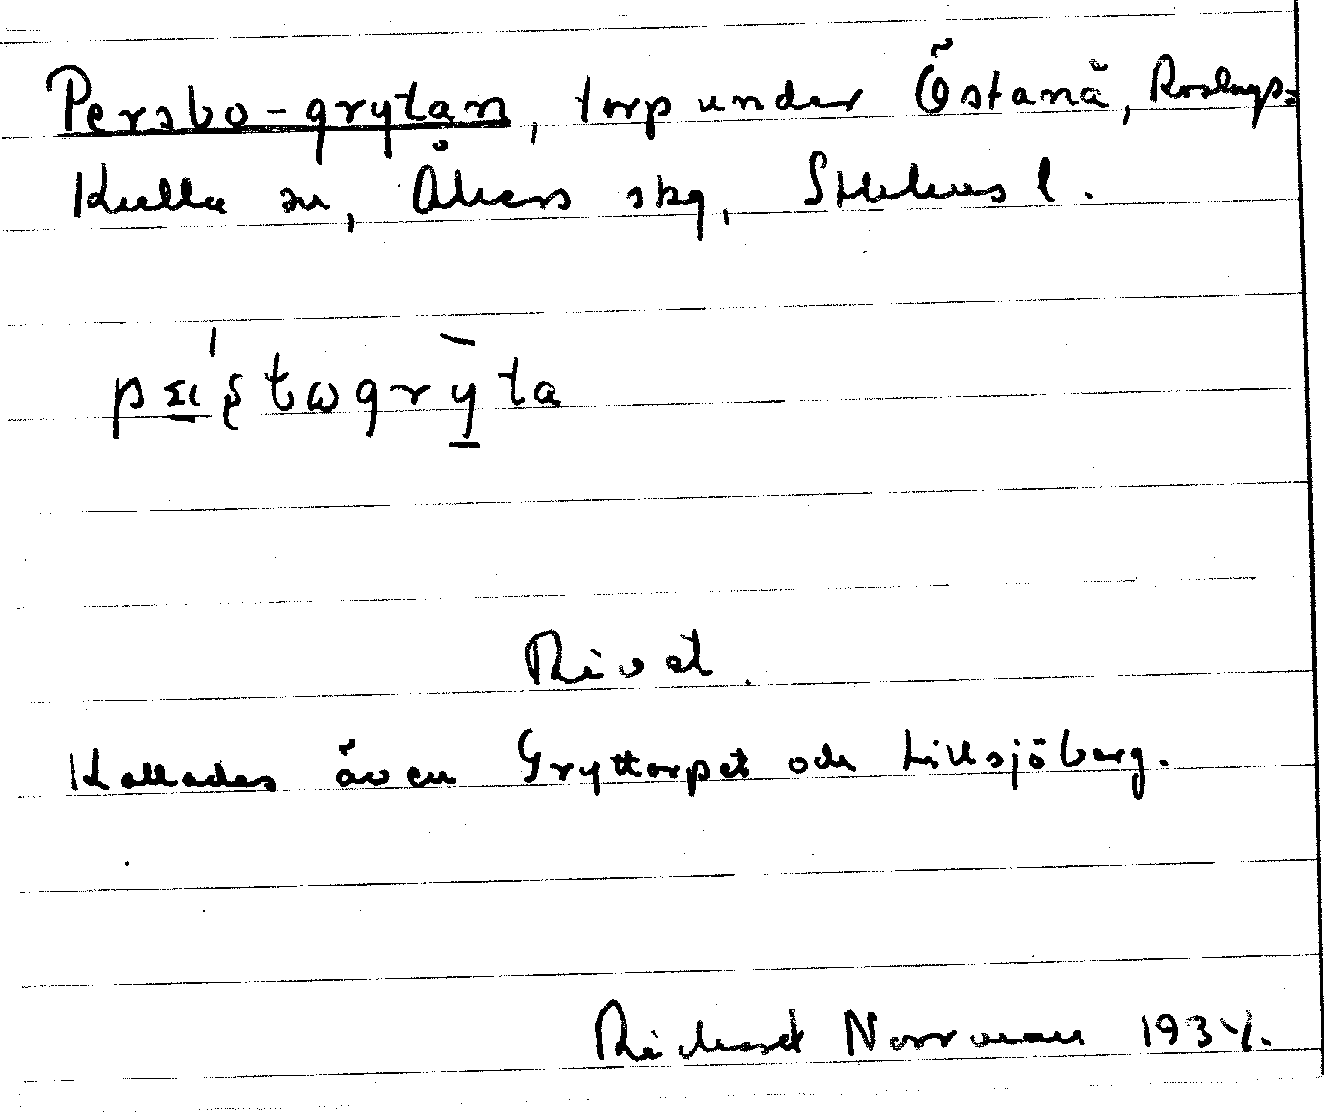 Persbo-grytan, torp under Östanå, Roslags-
Kulla sn, Åkers skg, Sthlms l.
Rivet.
Kallades även Gryttorpet och Lillsjöberg.
Richard Norrman 1934.